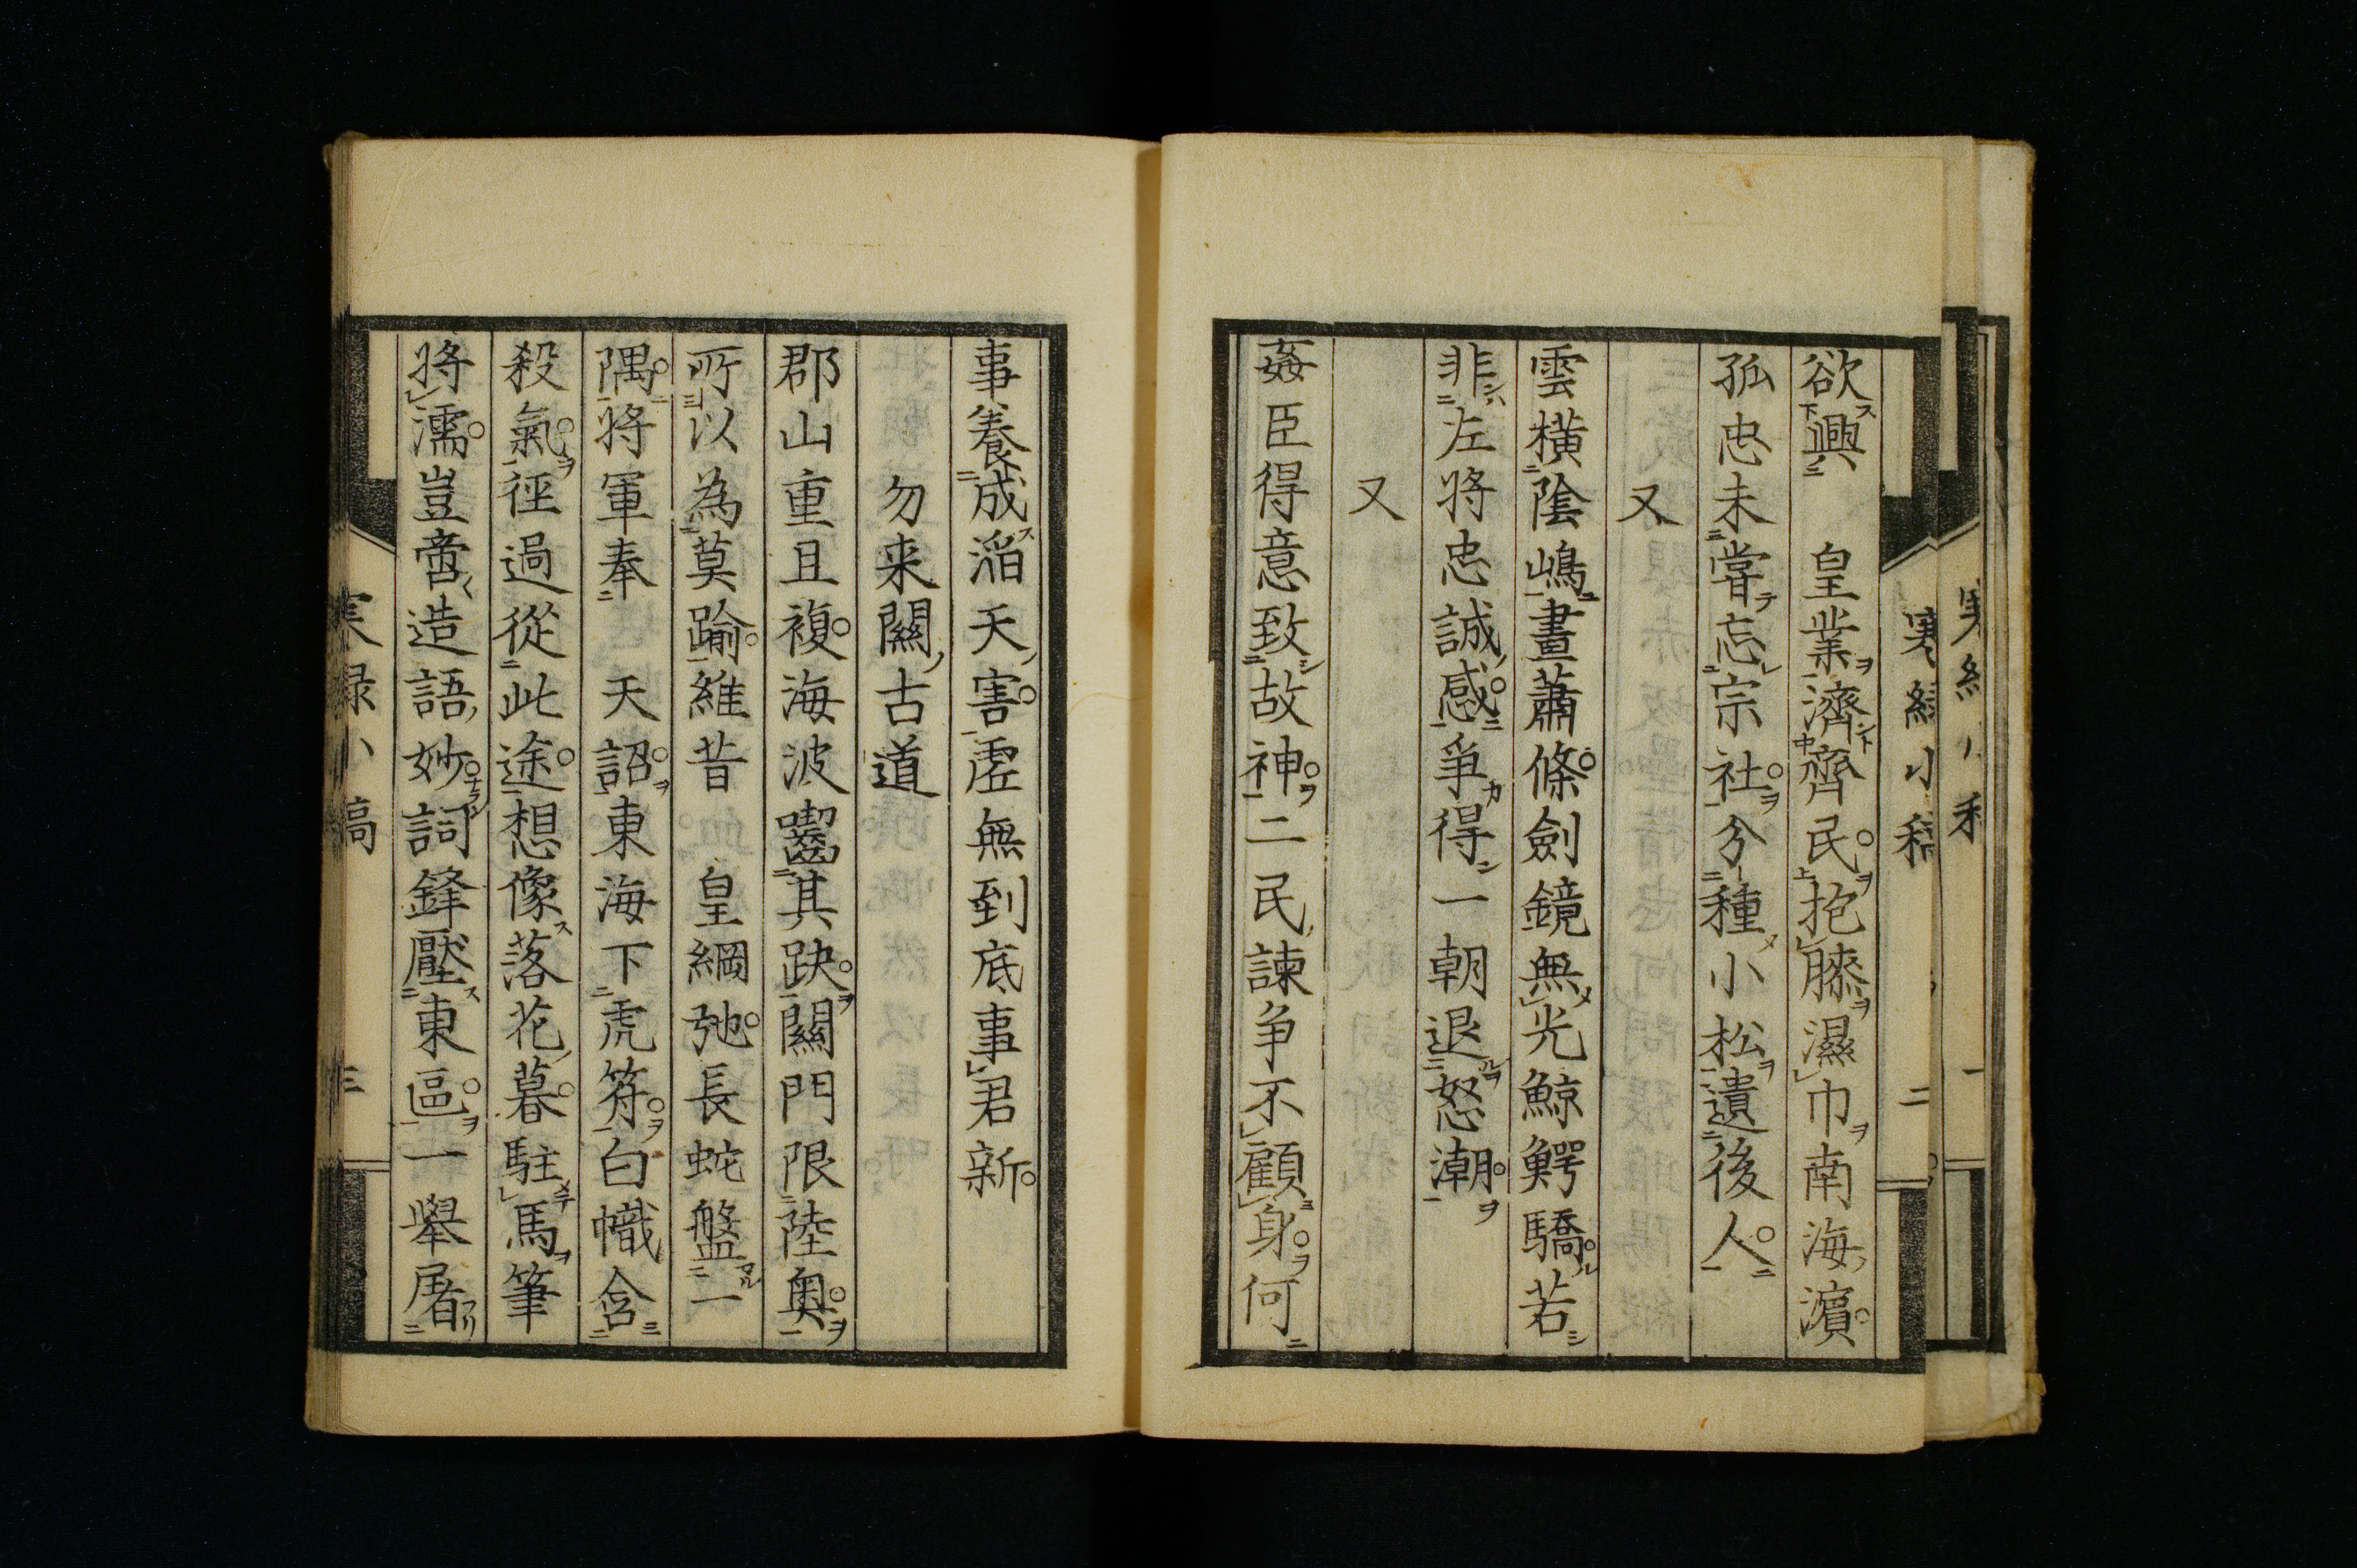 欲興　皇業濟齊民抱膝濕巾南海濵
孤忠未嘗忘宗社分種小松遺後人
又
雲横陰嶋晝蕭條劍鏡無光鯨鰐驕若
非左将忠誠感爭得一朝退怒潮
又
姦臣得意致故神二民諫争不顧身何
事養成滔天害虚無到底事君新
勿来關古道
郡山重且複海波齧其趺關門限陸奥
所以為莫踰維昔　皇綱弛長蛇盤一
隅将軍奉　天詔東海下虎符白幟含
殺氣徑過從此途想像落花暮駐馬筆
将濡豈啻造語妙詞鋒壓東區一舉屠
二
三